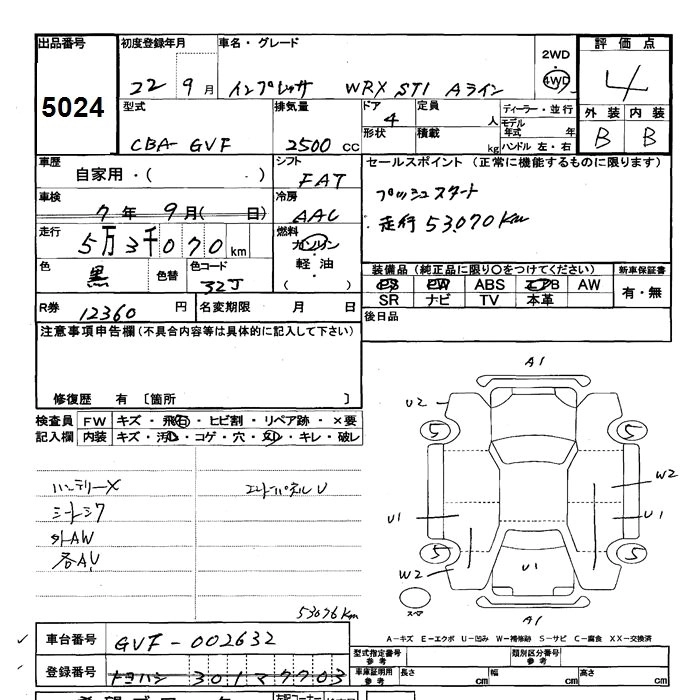 出品番号 初度登録年月 車名・グレード 2WD 4WD 評価点
5024 22 9月 インプレッサ WRX STI Aライン 4
型式 排気量 ドア 定員 ディーラー・並行 外装 内装
CBA-GVF 2500cc 4 人 モデル年式 年 B B
形状 積載 kg ハンドル 左・右
車歴 シフト セールスポイント (正常に機能するものに限ります)
自家用・( ・) FAT プッシュスタート
車検 冷房
7年9月( 日) AAC ・走行53,070Km
走行 燃料
5万3千070km ガソリン
色 色替 色コード 軽油 装備品 (純正品に限り〇をつけてください) 新車保証書
黒 32J ( ) PS PW ABS エアB AW 有・無
R券 12360円 名変期限 月 日 SR ナビ TV 本革
注意事項申告欄(不具合内容等は具体的に記入して下さい) 後日品
修復歴 有 〔箇所 〕
検査員 FW キズ・飛石・ヒビ割・リペア跡・×要
記入欄 内装 キズ・汚レ・コゲ・穴・・キレ・破レ
バッテリーX エンドパネルU
シートシワ
外AW
各AU
53076Km
A1
U2
5 5
W2
U1 U1
5 5
W2 U1
スペア
A1
A−キズ E−エクボ U−凹み W−補修跡 S−サビ C−腐食 XX−交換済
車台番号 GVF-002632
登録番号 トヨハシ 301マ7703
型式指定番号 参考 類別区分番号 参考
車庫証明用 参考 長さ cm 幅 cm 高さ cm